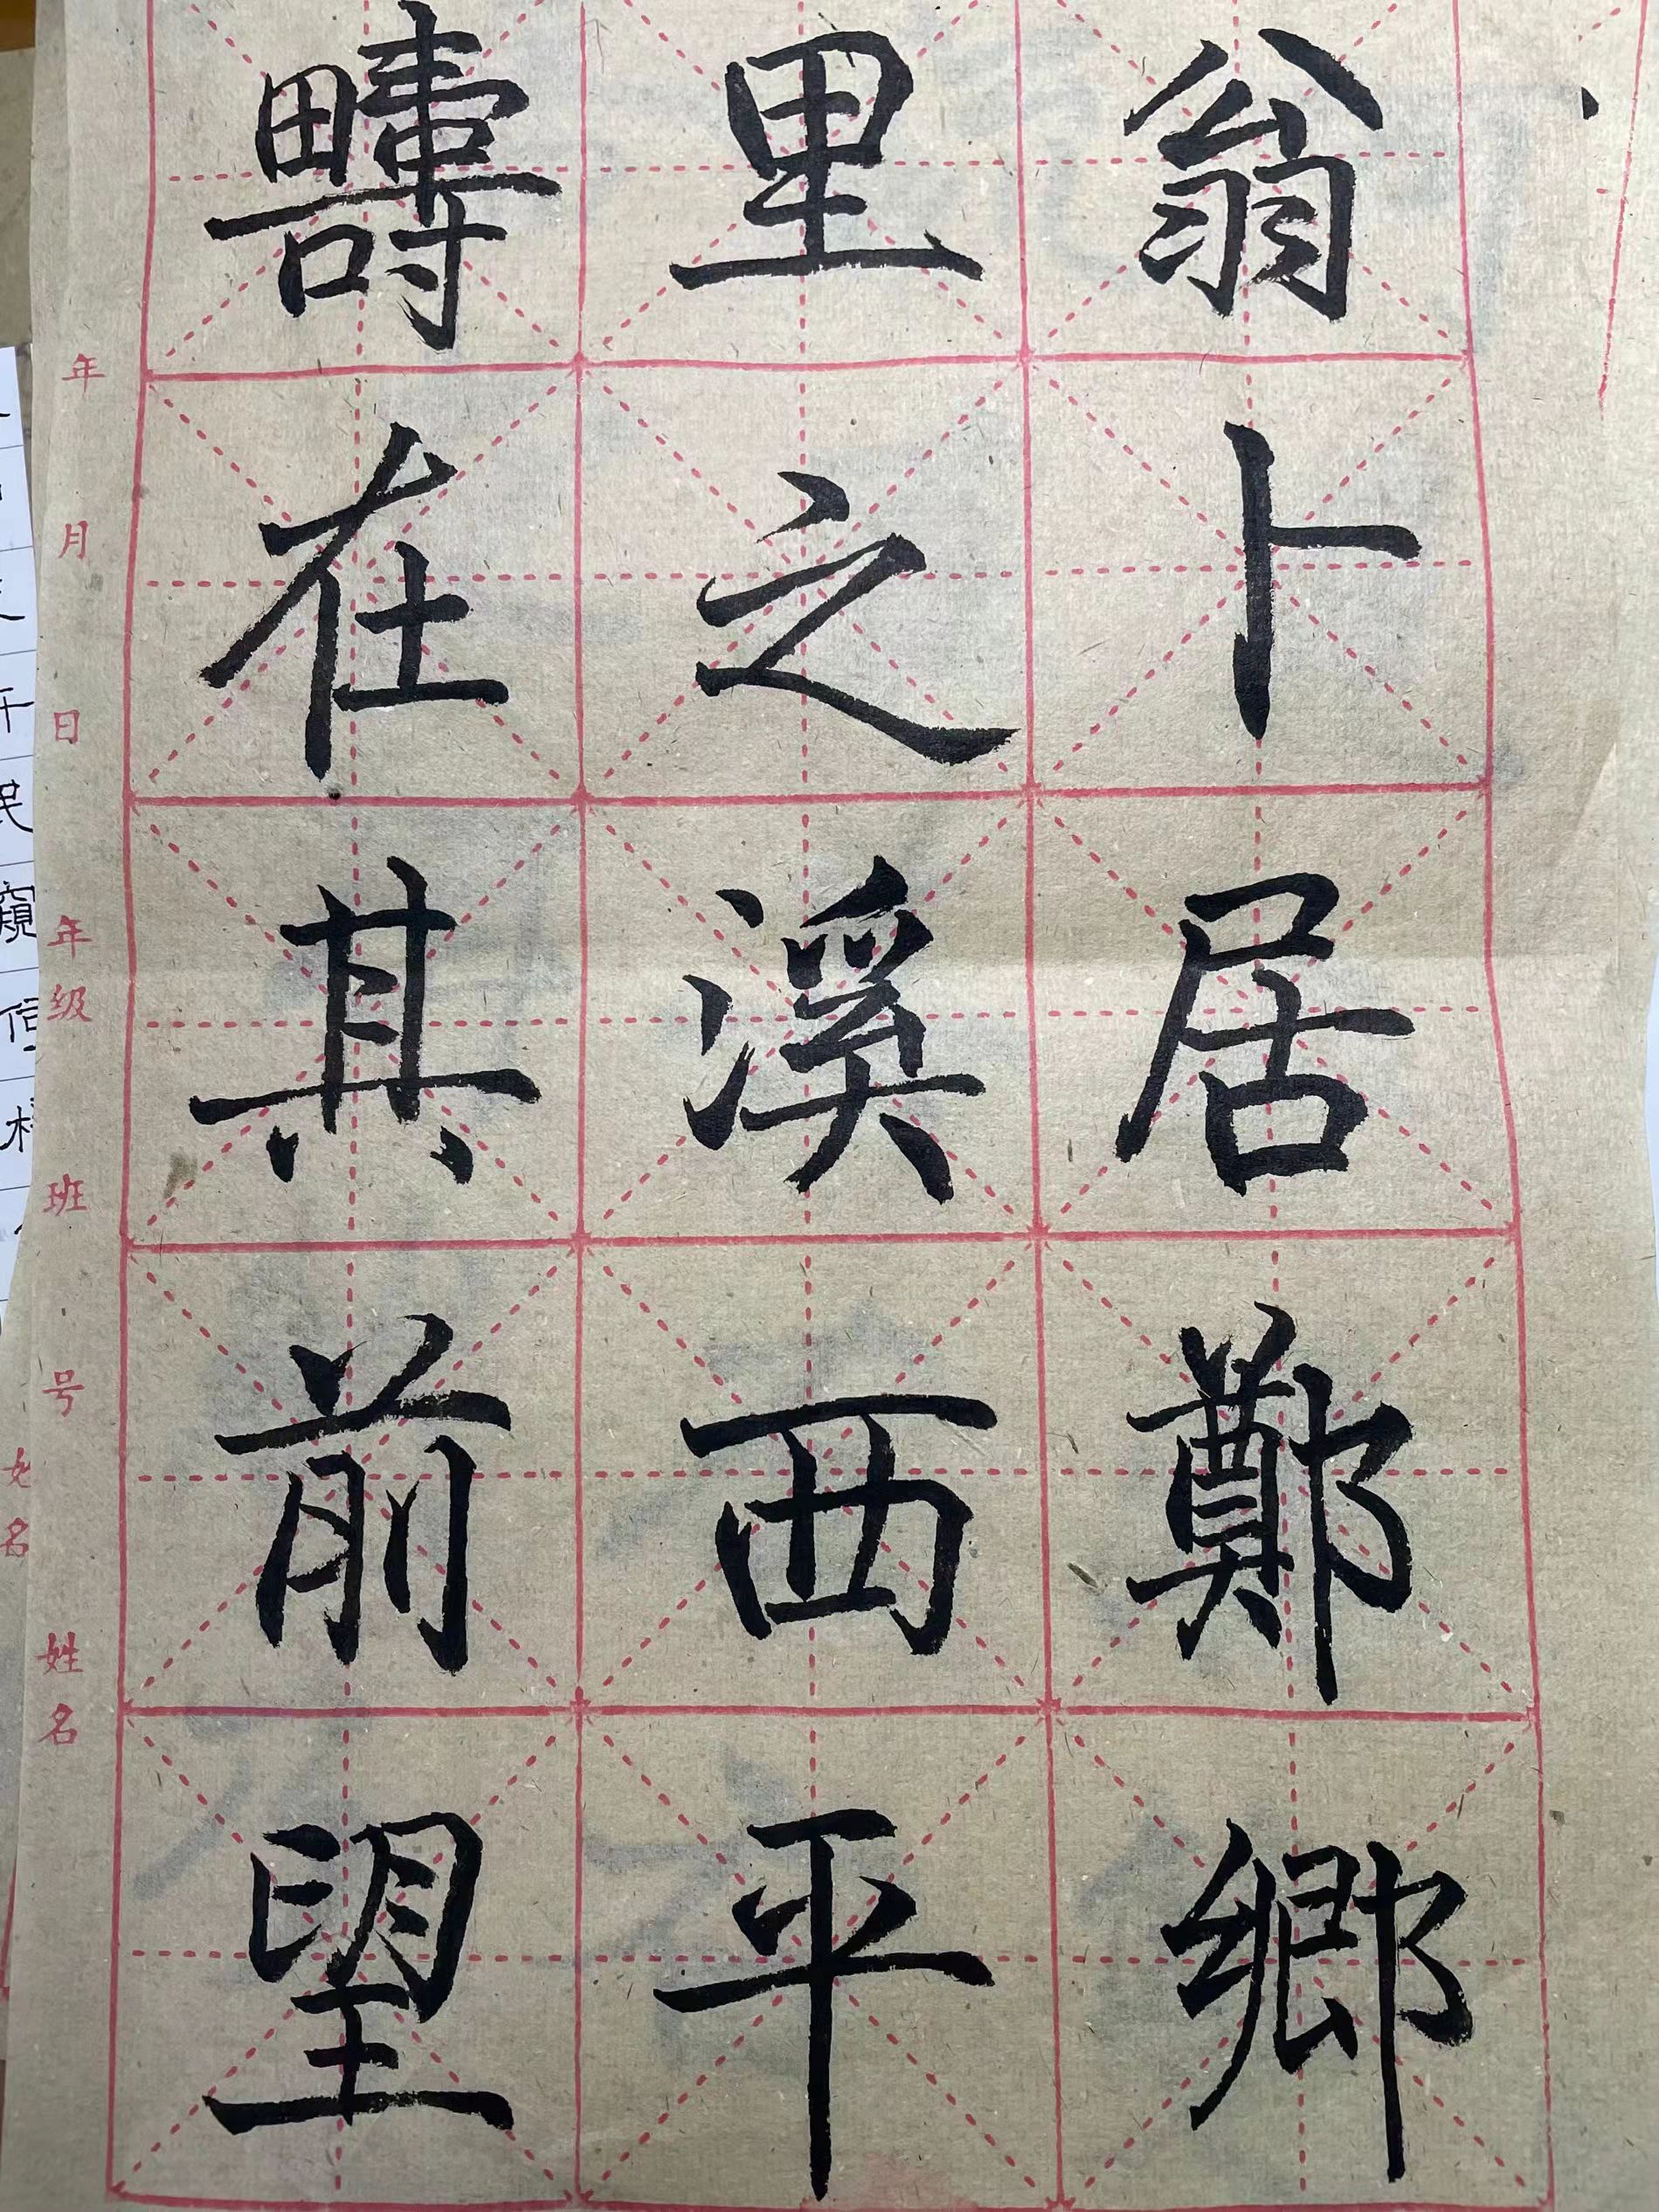 翁卜居鄭鄉
里之溪西平
疇在其前望
年 月 日 年级 班 号 姓名
姓名
民
窺